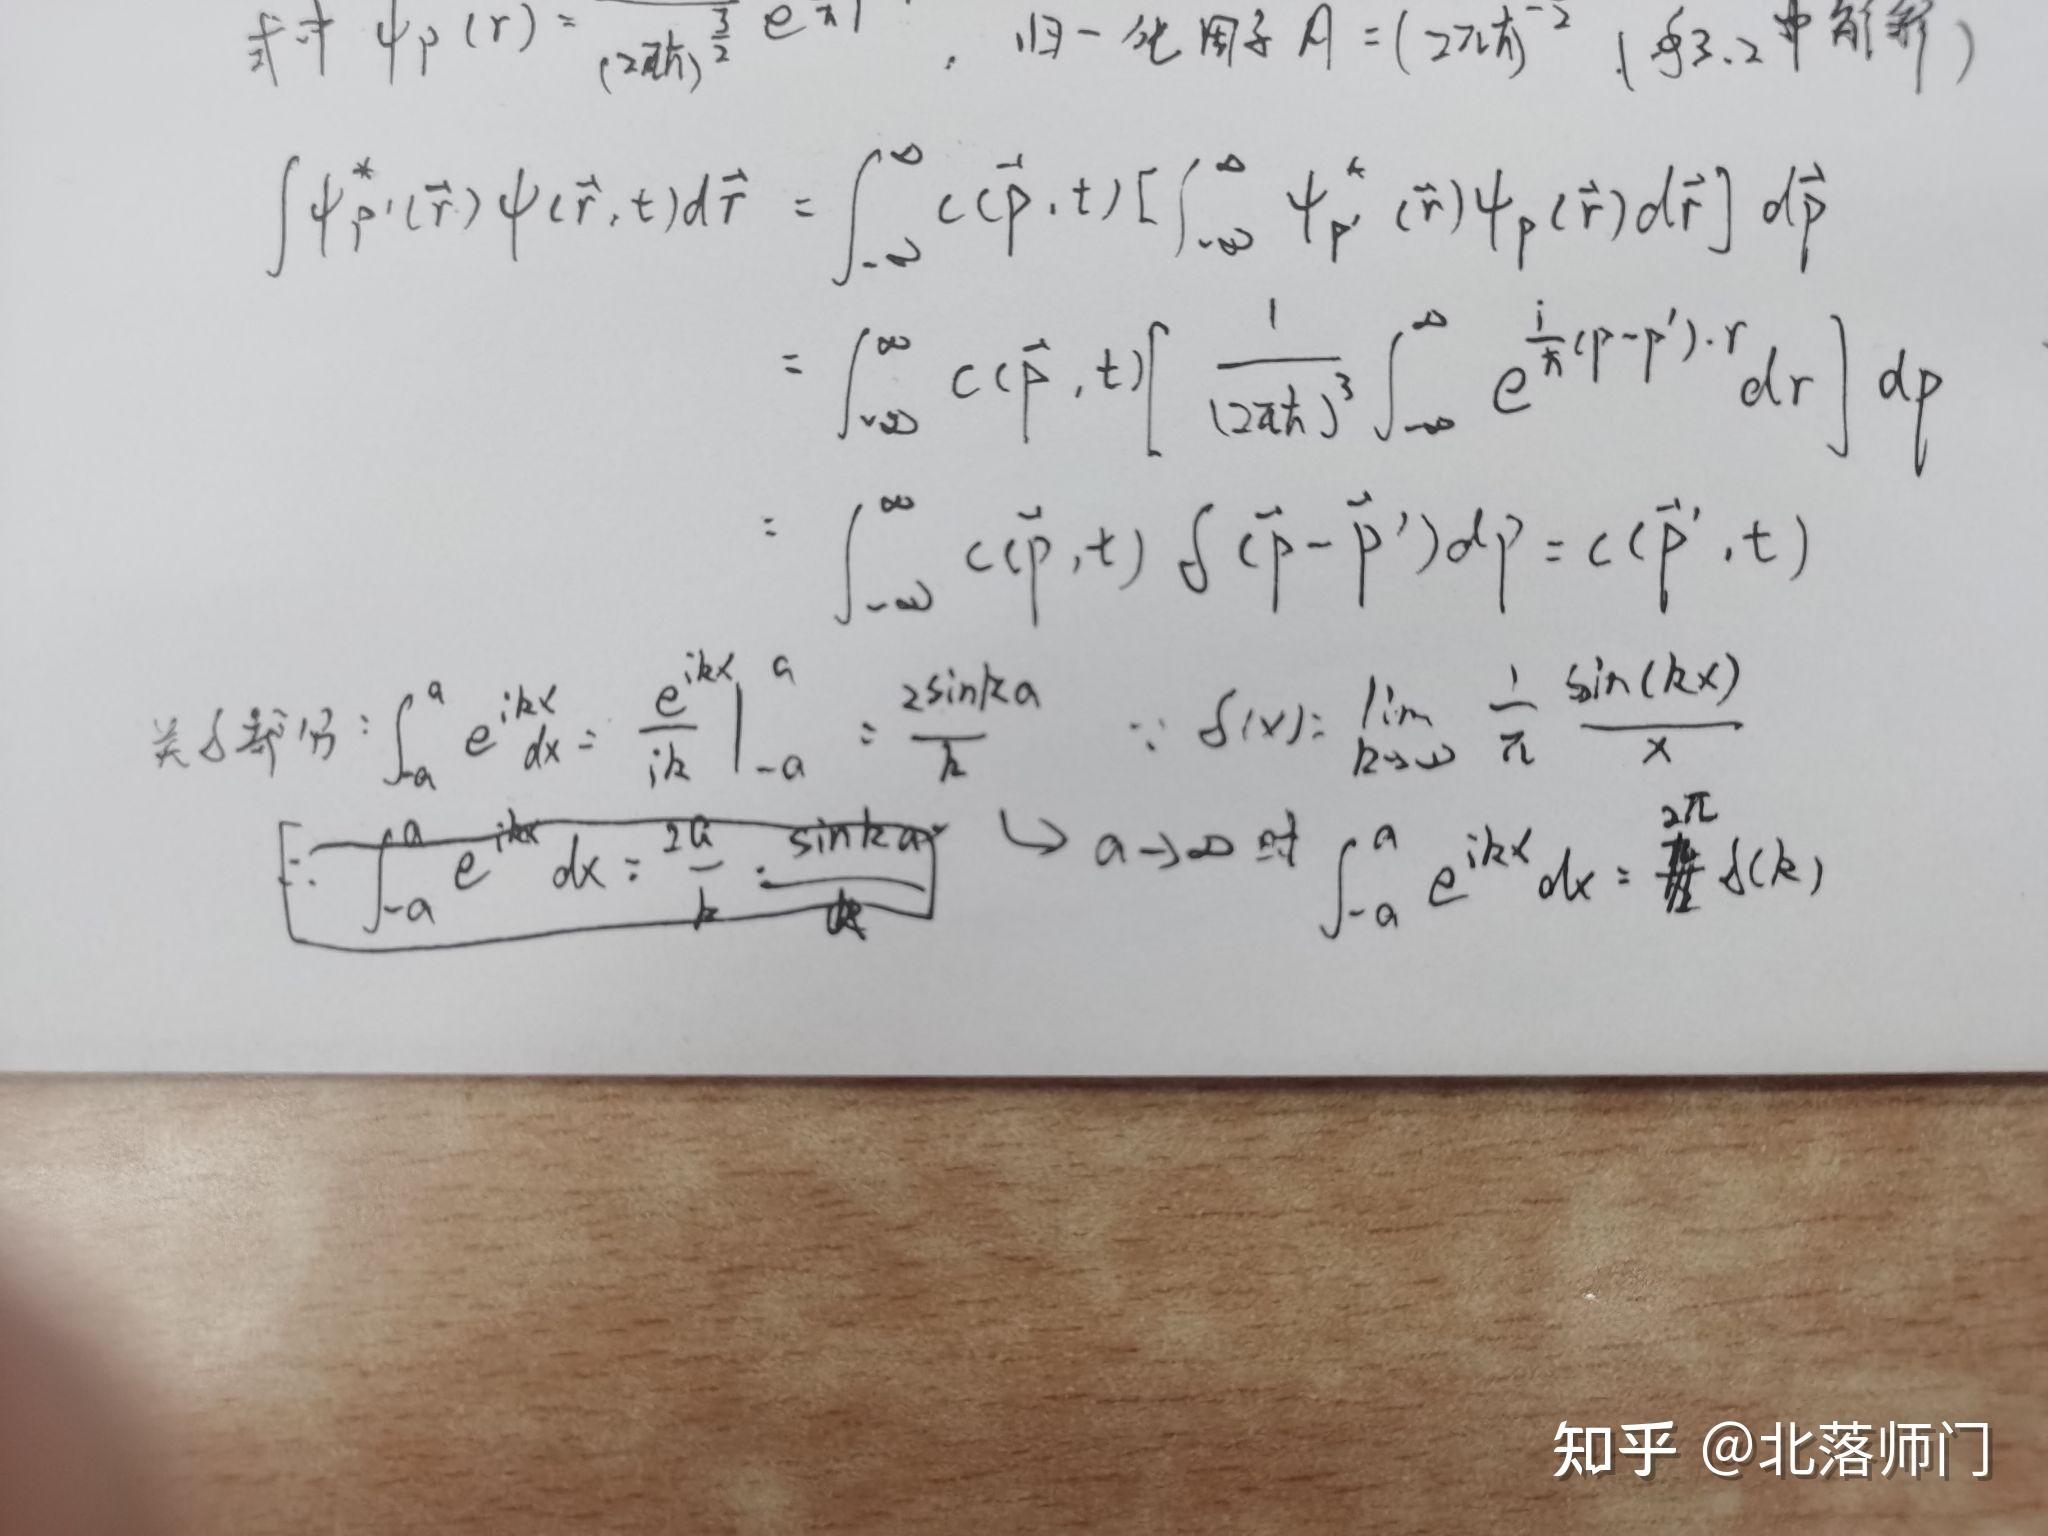 式中 ψp(r) = 1/(2πħ)^(3/2) e^(i/ħ) , 归一化因子 A = (2πħ)^(-3/2) (§3.2中解释)
∫ψ*p'(r⃗)ψ(r⃗,t)dr⃗ = ∫_{-∞}^{∞} c(p⃗,t)[∫_{-∞}^{∞} ψ*p'(r⃗)ψp(r⃗)dr⃗] dp⃗
= ∫_{-∞}^{∞} c(p⃗,t)[1/(2πħ)^3 ∫_{-∞}^{∞} e^{i/ħ(p-p')·r} dr] dp
= ∫_{-∞}^{∞} c(p⃗,t) δ(p⃗-p⃗')dp = c(p⃗',t)
关δ部份: ∫_{-a}^{a} e^{ikx} dx = e^{ikx}/ik |_{-a}^{a} = 2sinka/k ∵ δ(x) = lim_{k→∞} 1/π sin(kx)/x
∴ ∫_{-a}^{a} e^{ikx} dx = 2a/k · sinka/ka ↳ a→∞时 ∫_{-a}^{a} e^{ikx} dx = 2π δ(k)
知乎 @北落师门